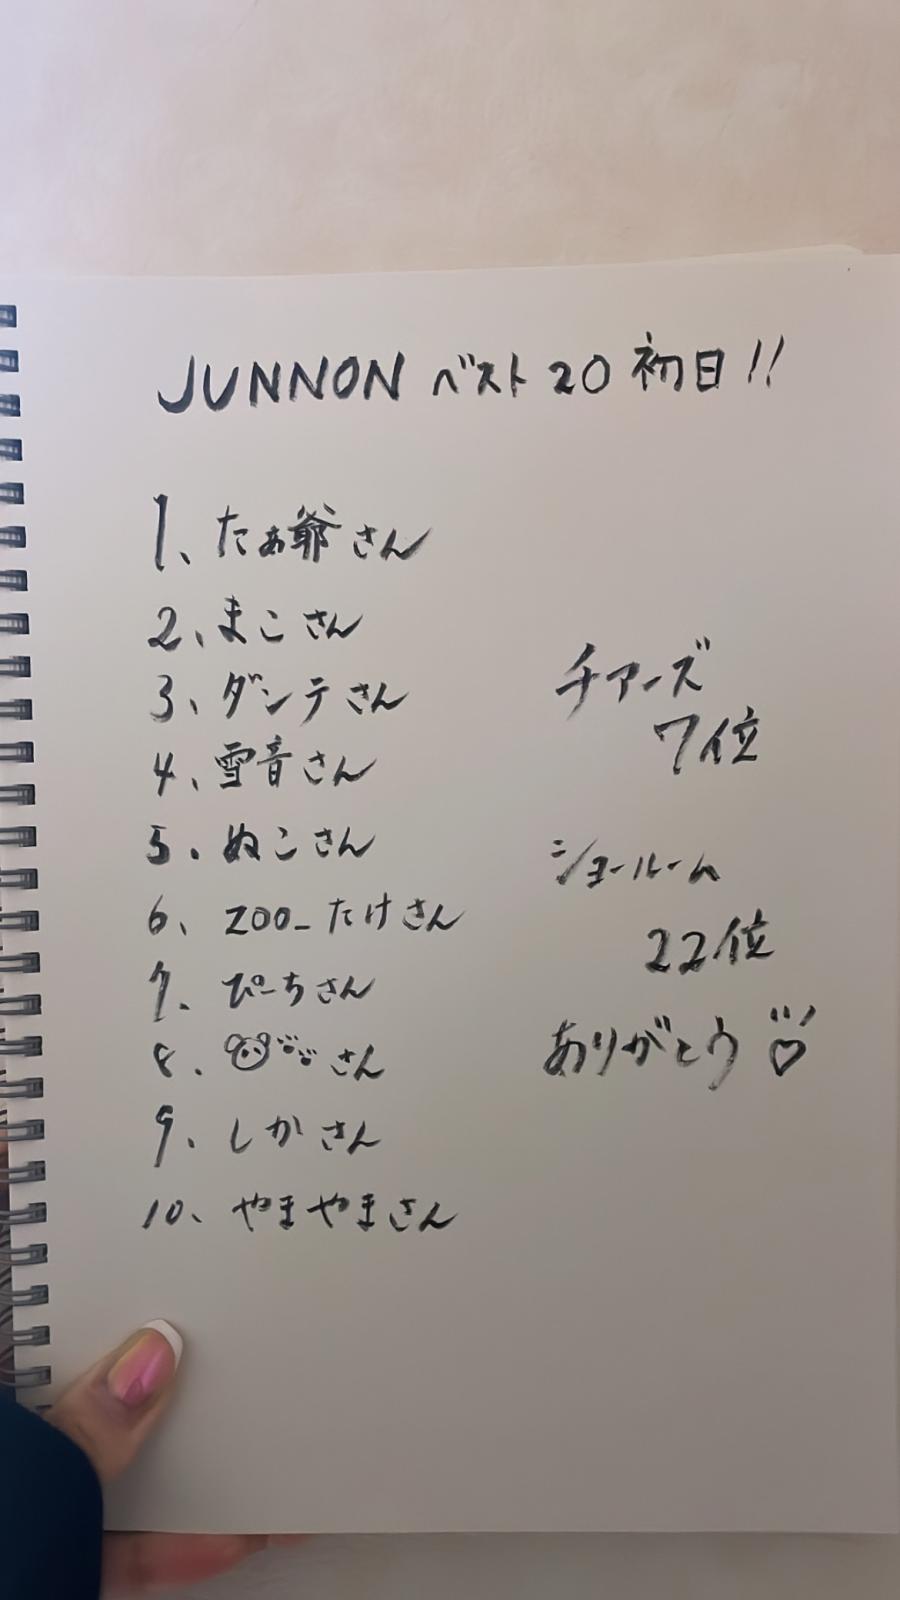 JUNNON ベスト20 初日!!
1、たぁ爺さん
2、まこさん
3、ダンテさん
4、雪音さん
5、ぬこさん
6、zoo_たけさん
7、ぴーちさん
8、🐻🐾さん
9、しかさん
10、やまやまさん
チアーズ
7位
ショールーム
22位
ありがとう♡